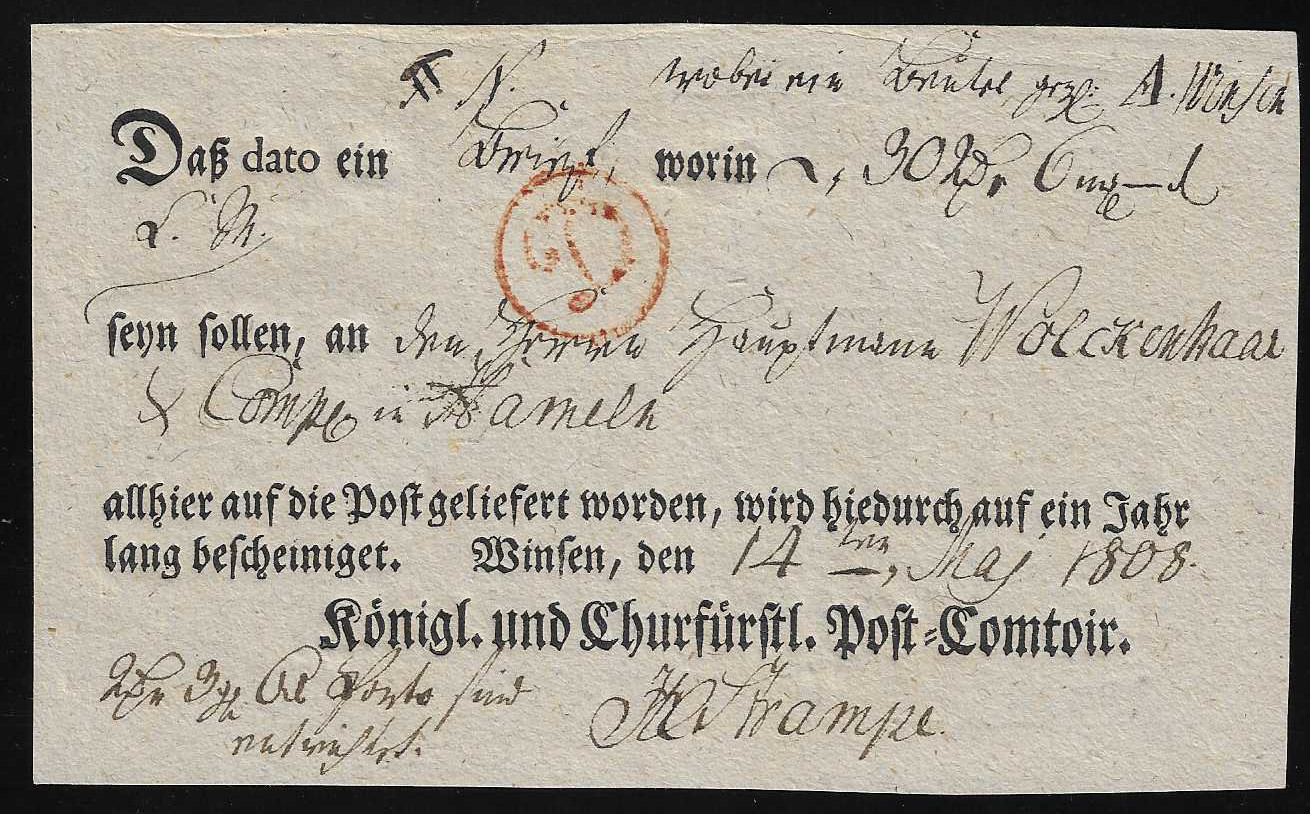 N. wobei ein Beutel gez. A.
Daß dato ein Brief, worin 30
L. M.
seyn sollen, an den Herren Hauptmann Wolckenhaar
& Comp in Hameln
allhier auf die Post geliefert worden, wird hiedurch auf ein Jahr
lang bescheiniget. Winsen, den 14 ten, Maj 1808.
Königl. und Churfürstl. Post-Comtoir.
3 Porto sind Strampe.
entrichtet.